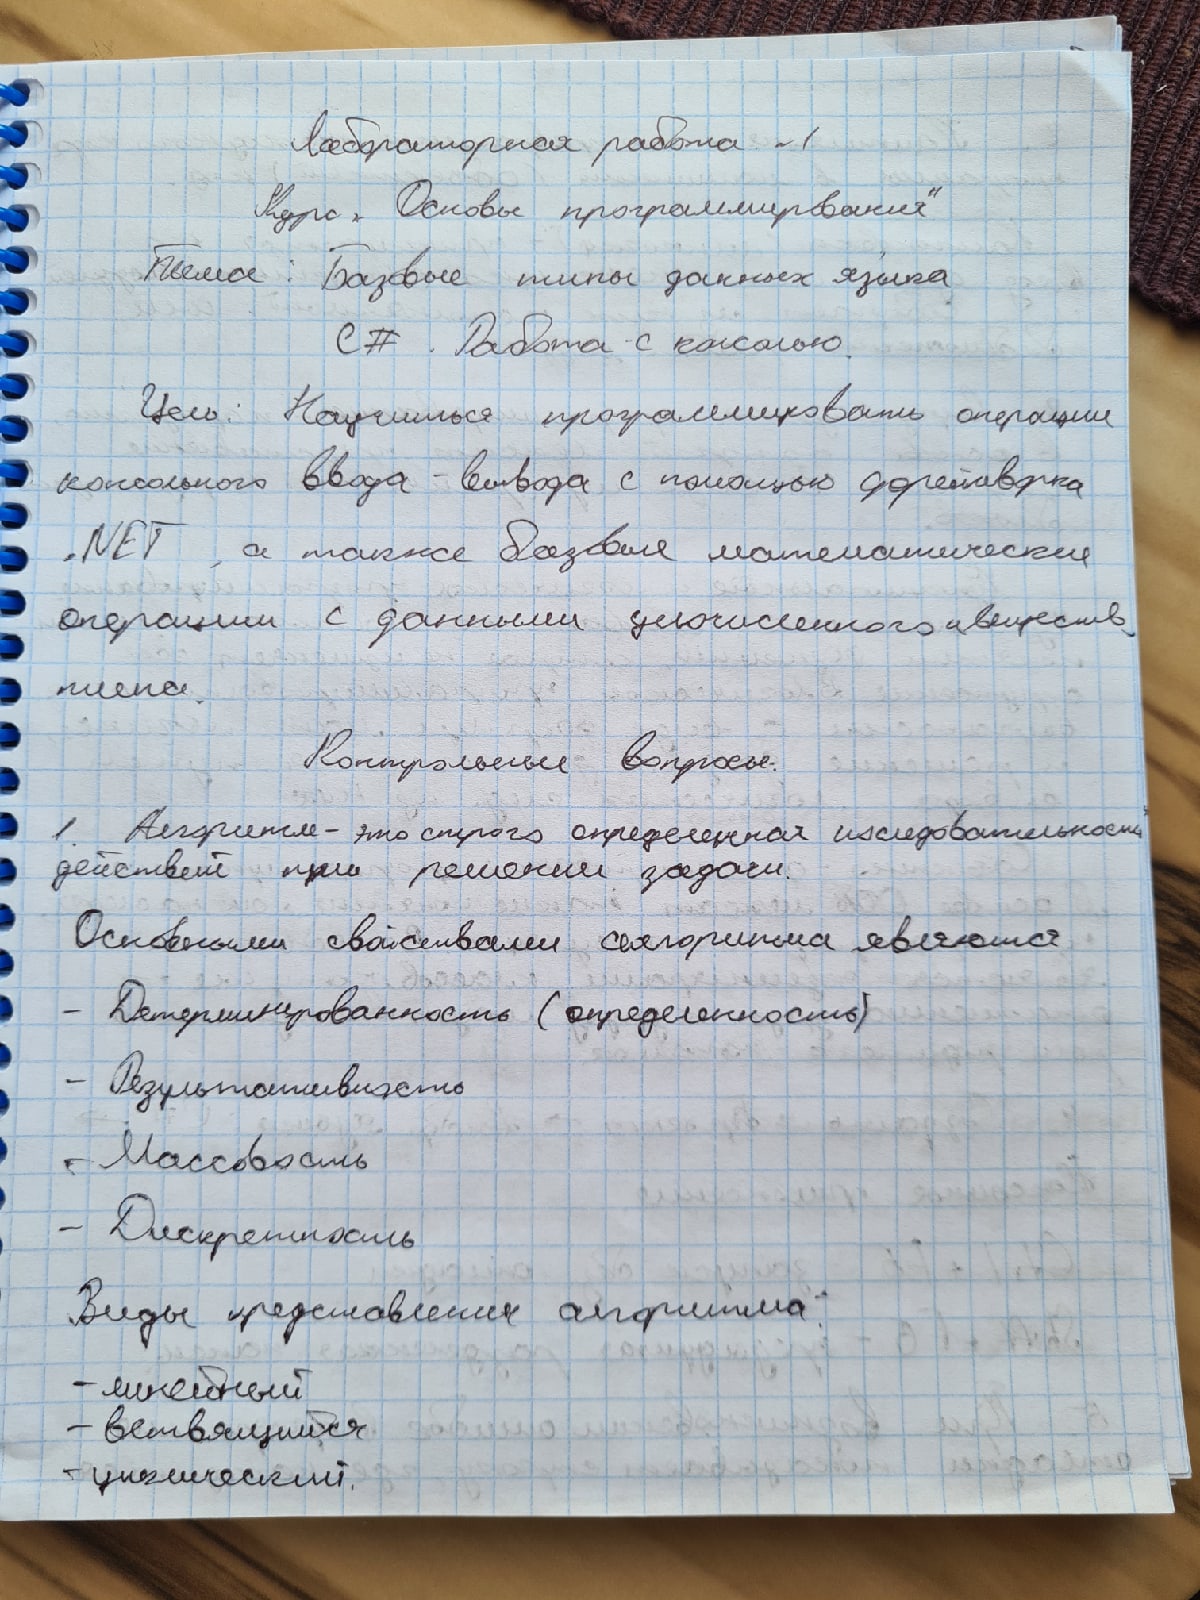 Лабораторная работа -1
Курс „ Основы программирования"
Тема : Базовые типы данных языка
C# . Работа с консолью.
Цель: Научиться программировать операции
консольного ввода - вывода с помощью фреймворка
.NET , а также базовые математические
операции с данными целочисленного и веществ.
типа.
Контрольные вопросы:
1. Алгоритм - это строго определенная последовательность
действий при решении задачи.
Основными свойствами алгоритма являются
- Детерминированность (определенность)
- Результативность
- Массовость
- Дискретность
Виды представления алгоритма:
- линейный
- ветвящийся
- циклический.